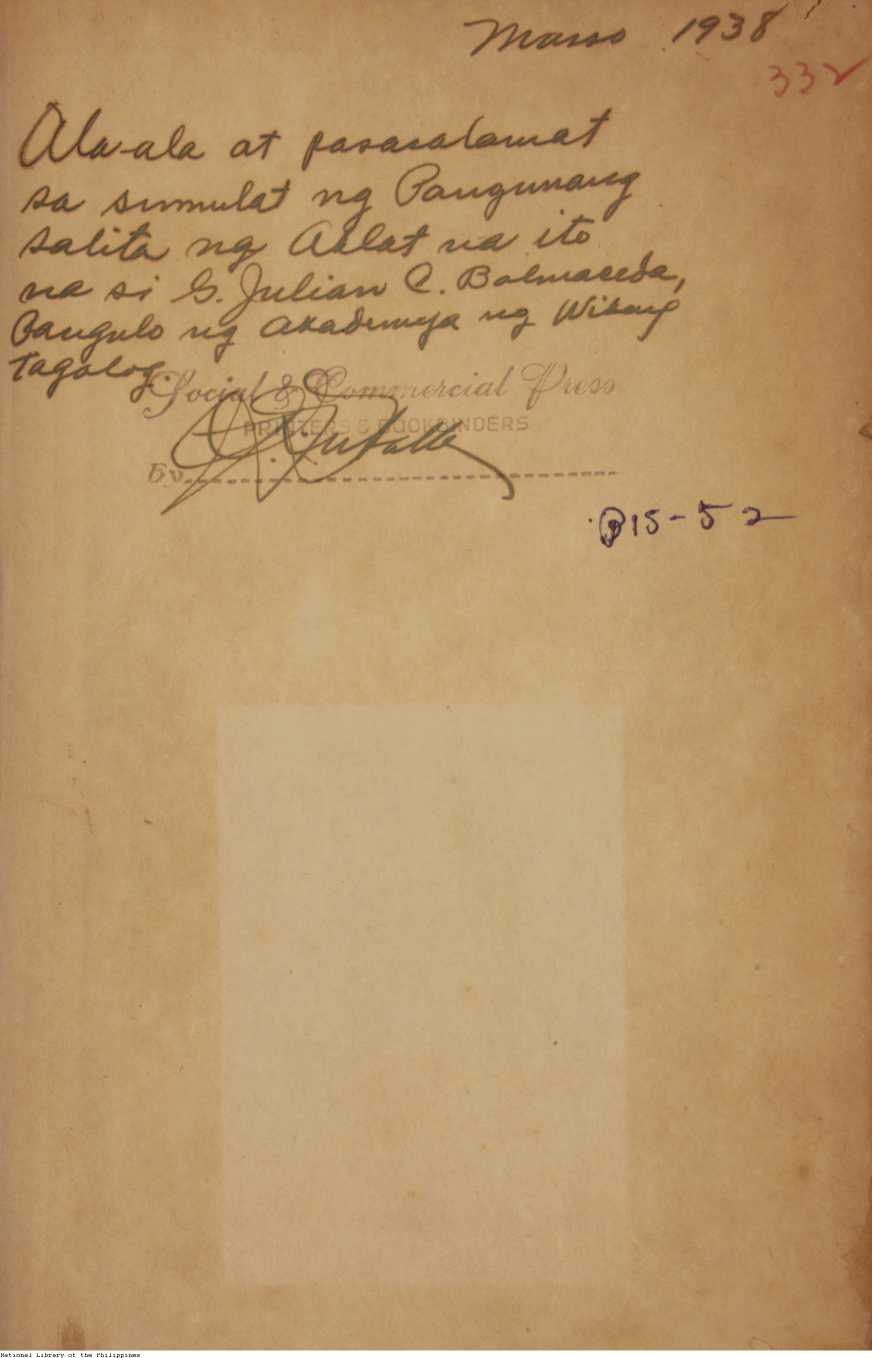 Marso 1938
332
Ala-ala at pasasalamat
sa sumulat ng Pangunang
salita ng Aklat na ito
na si G. Julian C. Balmaseda,
Pangulo ng Akademya ng Wikang
Tagalog.
Social & Commercial Press
PRINTERS & BOOKBINDERS
By
P15-52
National Library of the Philippines